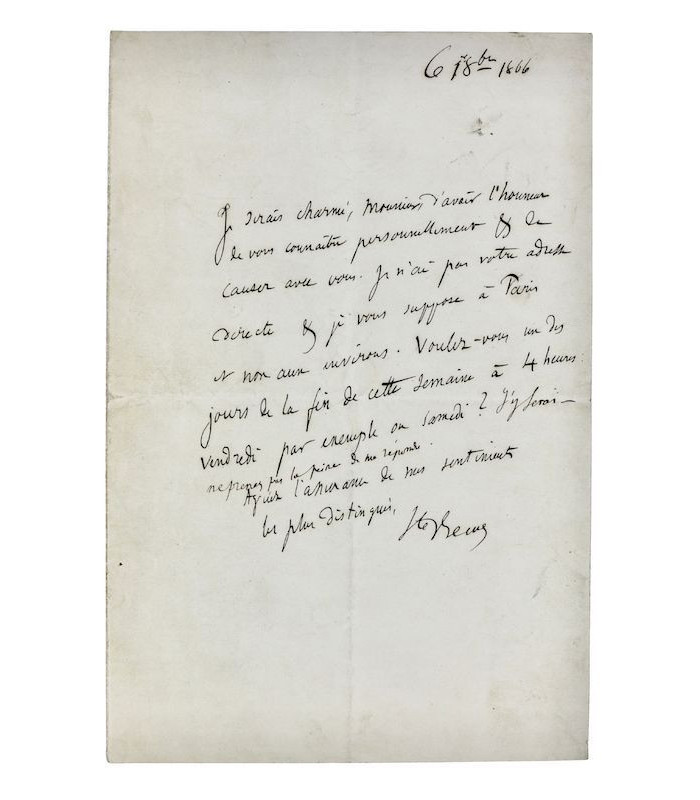 6 1866
Je serais charmé, Monsieur, d'avoir l'honneur
de vous connaître personnellement & de
causer avec vous. Je n'ai pas votre adresse
directe & je vous suppose à Paris
et non aux environs. Voulez-vous un des
jours de la fin de cette semaine à 4 heures
vendredi par exemple ou samedi? J'y serai –
ne prenez pas la peine de me répondre.
Agréez l'assurance de mes sentiments
les plus distingués,
Ste Beuve